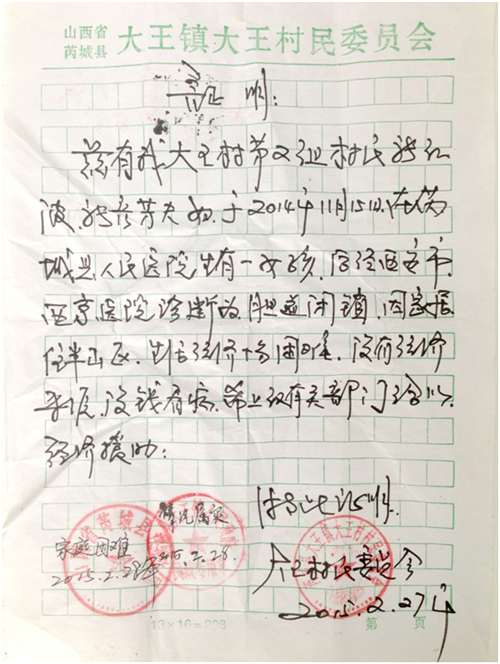 山西省
芮城县 大王镇大王村民委员会
证 明：
兹有我大王村第又组村民 红
波、 芳夫妇，于2014年11月15日，在芮
城县人民医院生有一女孩，后经西安市
西京医院诊断为胆道闭锁，因家居
住半山区，生活经济十分困难，没有经济
来源，没钱看病，希上级有关部门给以
经济援助：
特此证明
大王村民委员会
2015.2.27年
家庭困难
2015.2.28
情况属实
2015.2.28
大王镇大王村民委员会
13×16=208
第 页